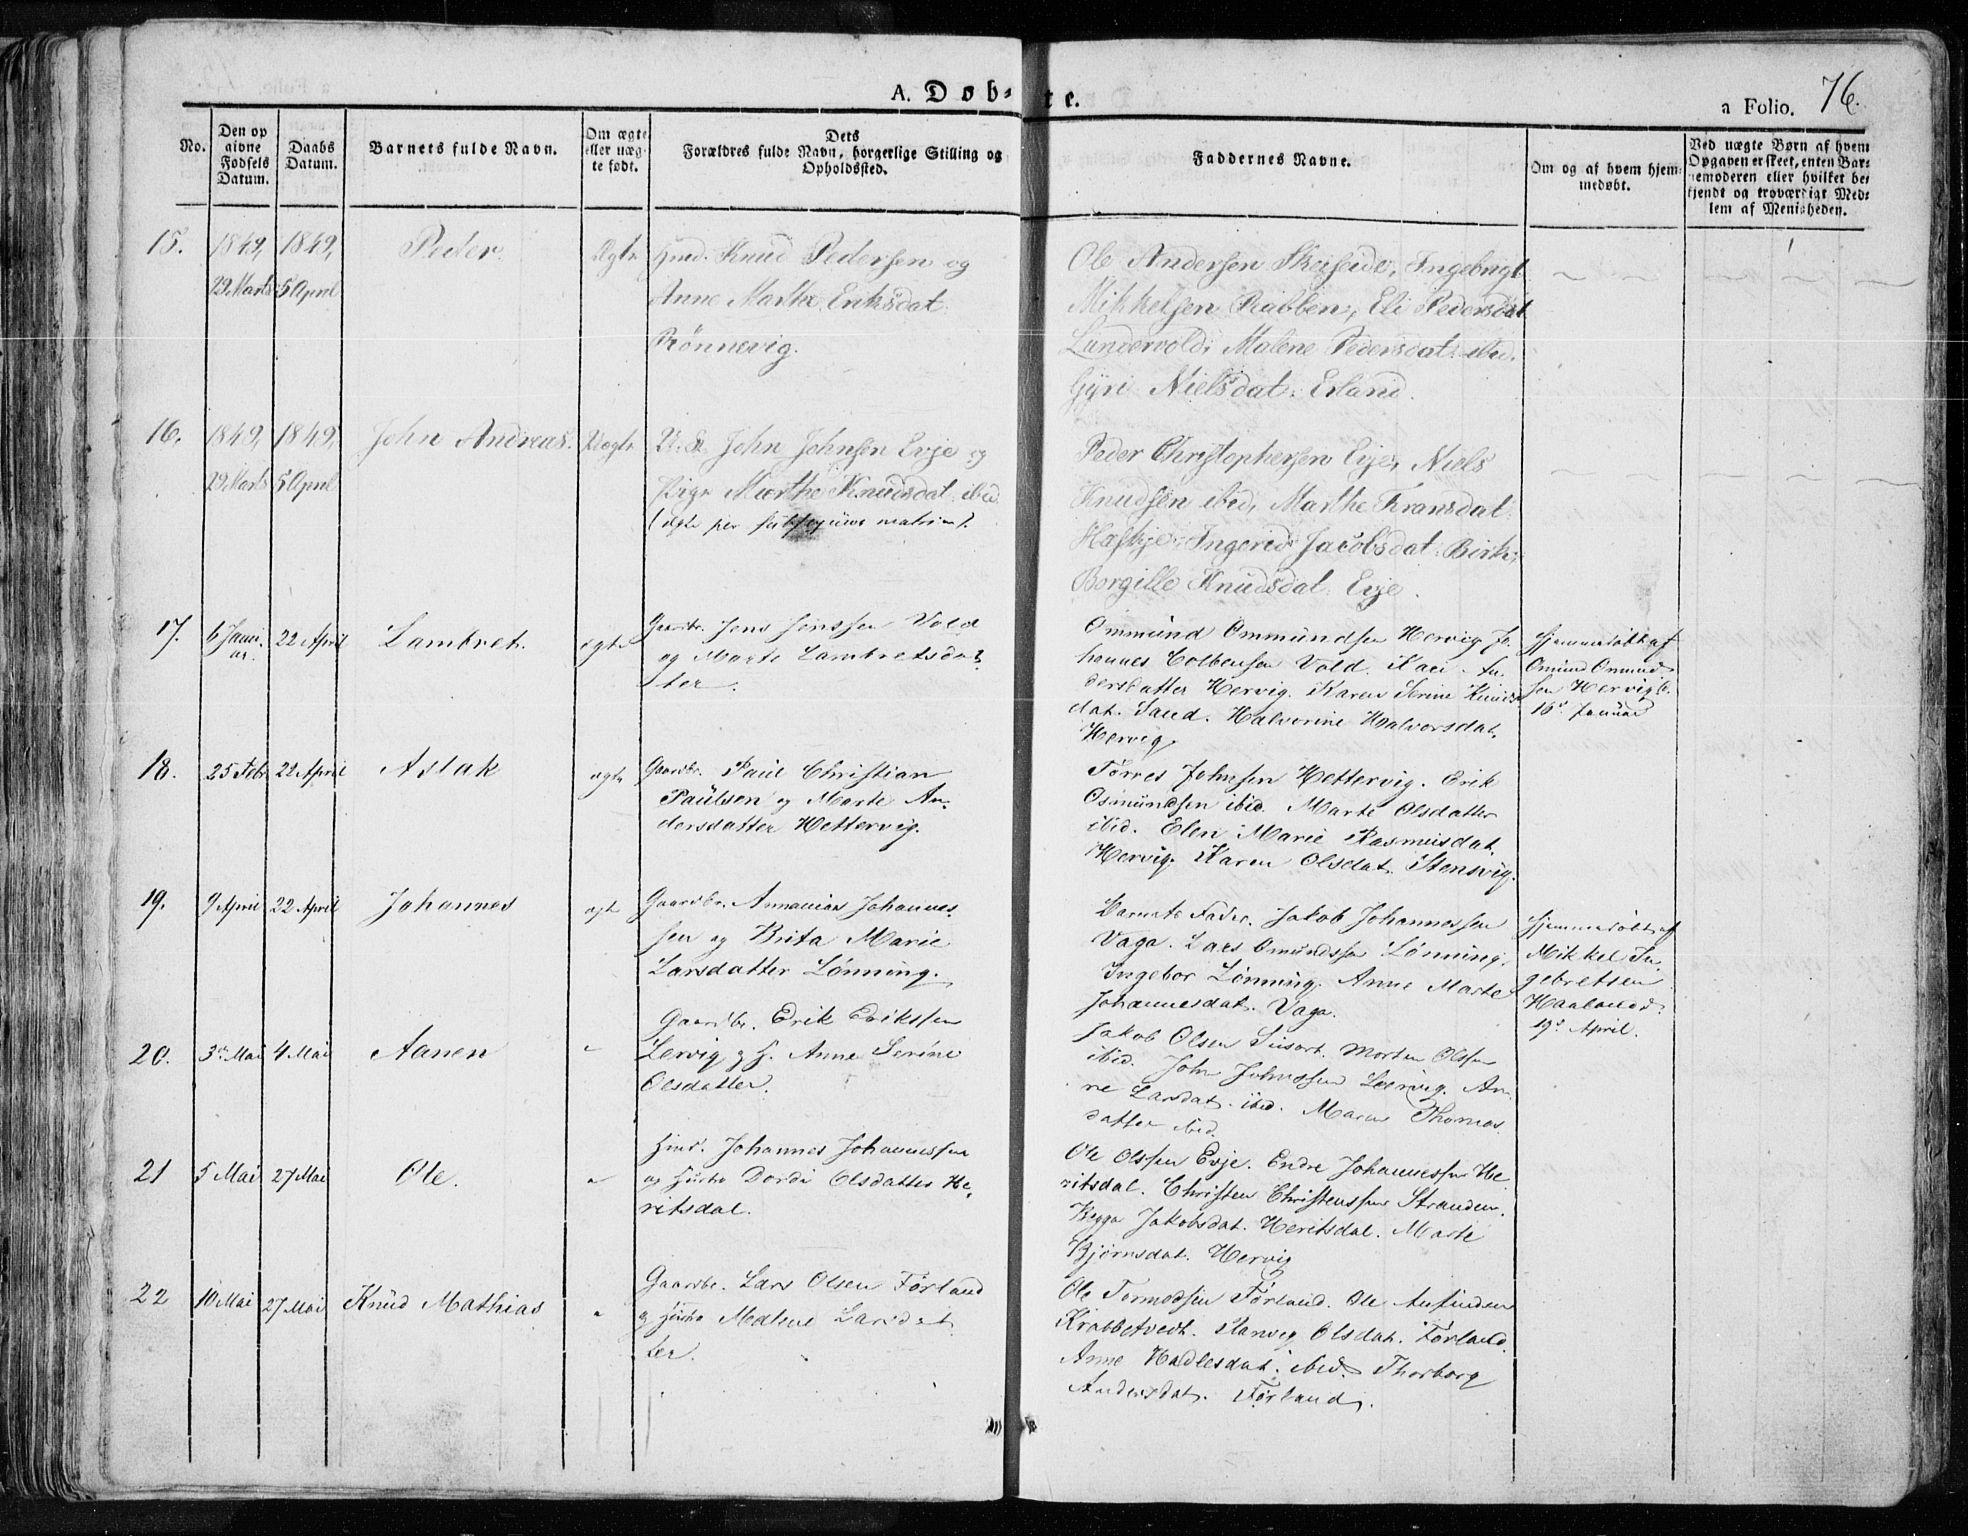 A. Døb-te.
a Folio. 76.
No.
Den op
givne
Fødsels
Datum.
Daabs
Datum.
Barnets fulde Navn.
Om ægte
eller uæg-
te født.
Dets
Forældres fulde Navn, borgerlige Stilling og
Opholdssted.
Faddernes Navne.
Om og af hvem hjem-
medøbt.
Ved uægte Børn af hvem
Opgaven er skeet, enten Bar-
nemoderen eller hvilket be-
kjendt og troværdigt Med-
lem af Menigheden.
15.
1849,
29 Marts
1849,
5 April
Peder
Ægte
Hmd. Knud Pedersen og
Anne Marthe Eriksdat.
Rönnevig.
Ole Andersen Skeiseide, Ingebrigt
Mikkelsen Rabben, Eli Pedersdat
Lundervold, Malene Pedersdat. ibid.
Gyri Nielsdat. Erland.
16.
1849,
29 Marts
1849,
5 April
John Andreas.
Uægte
U. K. John Johnsen Evje og
Pige Marthe Knudsdat. ibid.
(ægte per subseqvens matrim).
Peder Christophersen Evje, Niels
Knudsen ibid, Marthe Fransdat.
Hafskje, Ingerid Jacobsdat. Birk,
Borgille Knudsdat. Evje.
17.
6 Janu-
ar.
22 April
Lambret.
egte
Gaardbr. Jens Jenssen Vold
og Marte Lambretsdat-
ter.
Ommund Ommundsen Hervig. Jo-
hannes Colbensen Vold. Kari An-
dersdatter Hervig. Karen Serine Knuds-
dat. Sand. Halvorine Halvorsdat.
Hervig.
Hjemmedöbt af
Omund Omund-
sen Hervig d.
16d. Januar
18.
25 Febr.
22 April
Aslak
egte
Gaardbr. Paul Christian
Paulsen og Marte An-
dersdatter Hettervig.
Törres Johnsen Hettervig. Erik
Osmundsen ibid. Marte Olsdatter
ibid. Elen Marie Rasmusdat.
Hervig. Karen Olsdat. Stensvig.
19.
9 April
22 April
Johannes
egte
Gaardbr. Annanias Johannes-
sen og Brita Marie
Larsdatter Lönning.
Barnets Fader. Jakob Johannessen
Vaga. Lars Omundssen Lönning.
Ingebor Lönning. Anne Marte
Johannesdat. Vaga.
Hjemmedöbt af
Mikkel In-
gebretsen
Haaland
19d. April.
20.
3d. Mai
4 Mai
Aanen
"
Gaardbr. Erik Erikssen
Lervig og H. Anne Serine
Olsdatter.
Jakob Olsen Susort. Morten Olsen
ibid. John Johnssen Leervig. An-
ne Larsdat. ibid. Maren Thomas-
datter ibid.
21
5 Mai
27 Mai
Ole.
"
Hmd. Johannes Johannessen
og Hustru Dordi Olsdatter He-
ritsdal.
Ole Olssen Evje. Endre Johannessen He-
ritsdal. Christen Christenssen Stranden.
Begga Jakobsdat. Heritsdal. Marte
Bjørnsdat. Hervig
22
10 Mai
27 Mai
Knud Mathias
"
Gaardbr. Lars Olsen Førland
og Hustru Malene Larsdat-
ter.
Ole Tormodsen Førland. Ole Anfindsen
Krabbetvedt. Ranveg Olsdat. Førland.
Anne Hadlesdat. ibid. Thorborg
Andersdat. Førland.